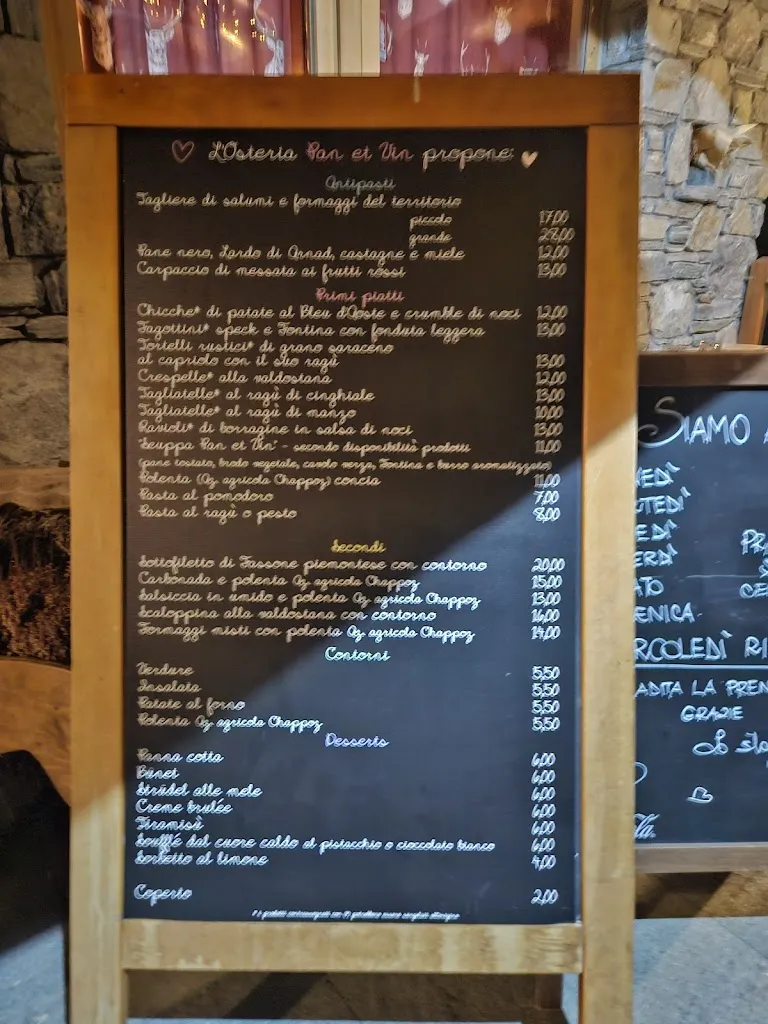 L'Osteria Pan et Vin propone:
Antipasti
Tagliere di salumi e formaggi del territorio
piccolo 17,00
grande 28,00
Pane nero, Lardo di Arnad, castagne e miele 12,00
Carpaccio di messata ai frutti rossi 13,00
Primi piatti
Chicche* di patate al Bleu d'Aoste e crumble di noci 12,00
Fagottini* speck e Fontina con fonduta leggera 13,00
Tortelli rustici* di grano saraceno
al capriolo con il suo ragù 13,00
Crespelle* alla valdostana 12,00
Tagliatelle* al ragù di cinghiale 13,00
Tagliatelle* al ragù di manzo 10,00
Ravioli* di borragine in salsa di noci 13,00
Seuppa Pan et Vin' - secondo disponibilità prodotti 11,00
(pane tostato, brodo vegetale, cavolo verza, Fontina e burro aromatizzato)
Polenta (Az agricola Chappoz) concia 11,00
Pasta al pomodoro 7,00
Pasta al ragù o pesto 8,00
Secondi
Sottofiletto di Fassone piemontese con contorno 20,00
Carbonada e polenta Az agricola Chappoz 15,00
Salsiccia in umido e polenta Az agricola Chappoz 13,00
Scaloppina alla valdostana con contorno 16,00
Formaggi misti con polenta Az agricola Chappoz 14,00
Contorni
Verdure 5,50
Insalata 5,50
Patate al forno 5,50
Polenta Az agricola Chappoz 5,50
Desserts
Panna cotta 6,00
Bünet 6,00
Strüdel alle mele 6,00
Creme brulée 6,00
Tiramisù 6,00
Soufflé dal cuore caldo al pistacchio o cioccolato bianco 6,00
Sorbetto al limone 4,00
Coperto 2,00
SIAMO A
NEDÌ
TEDÌ
EDÌ
ERDÌ
ATO
ENICA
PR
S
CE
RCOLEDÌ RI
ADITA LA PREN
GRAZIE
Lo sta
la